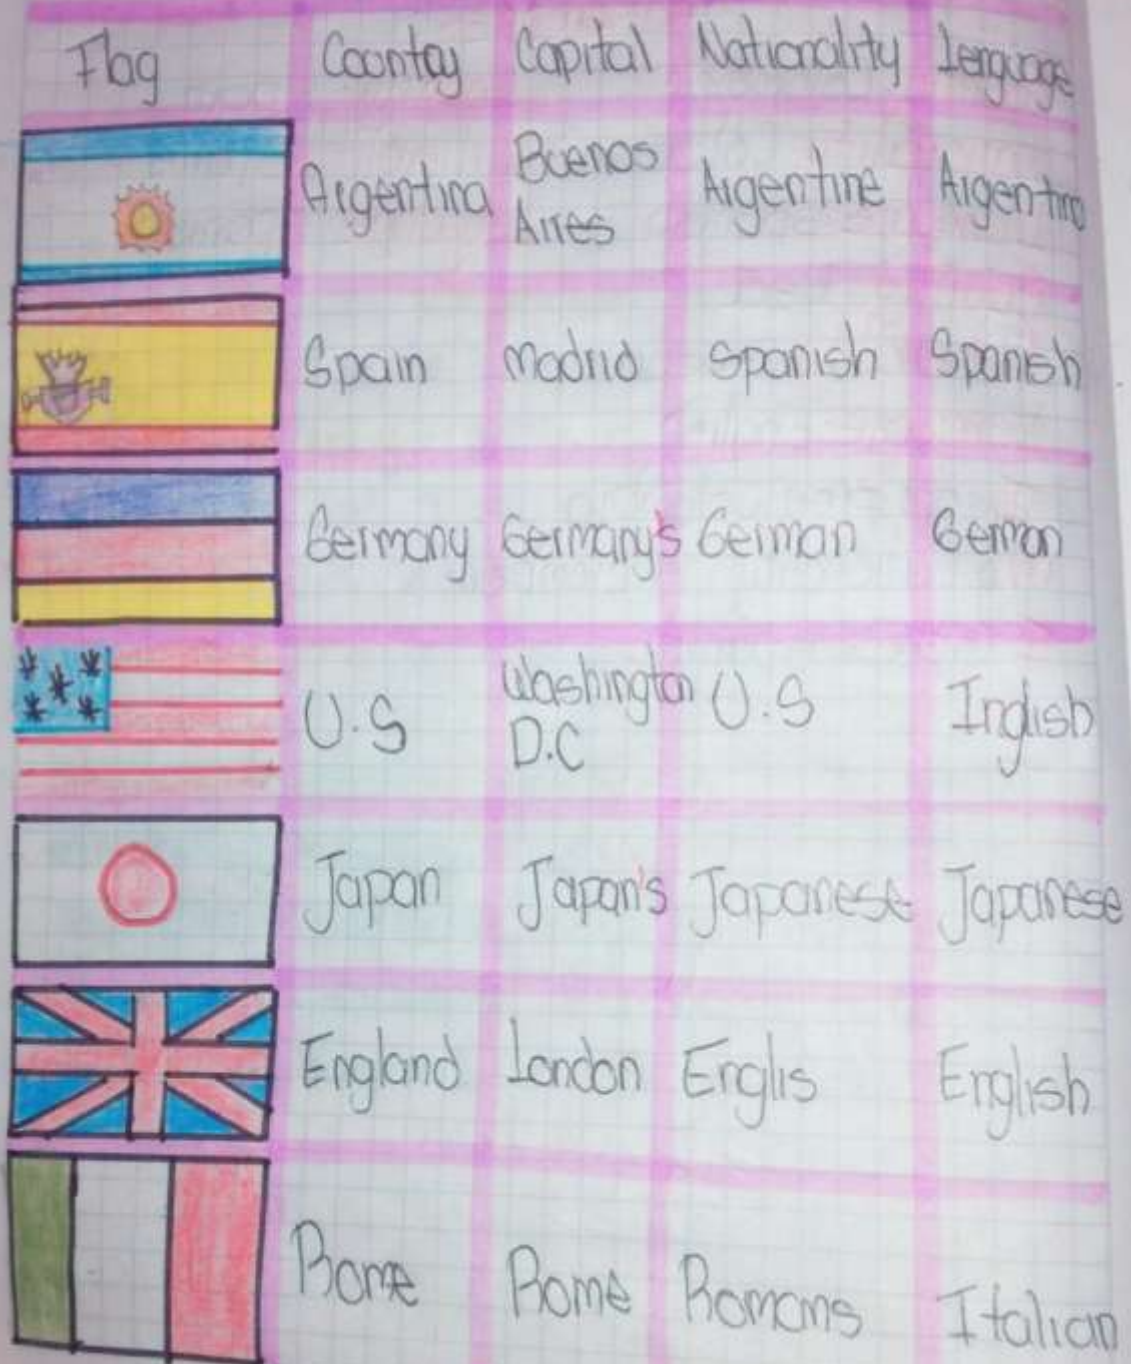 Flag Country Capital Nationality lenguage
Argentina Buenos Aires Argentine Argentino
Spain Madrid Spanish Spanish
Germany Germany's German German
U.S Washington D.C U.S Inglish
Japan Japan's Japanese Japanese
England London Englis English
Rome Rome Romans Italian